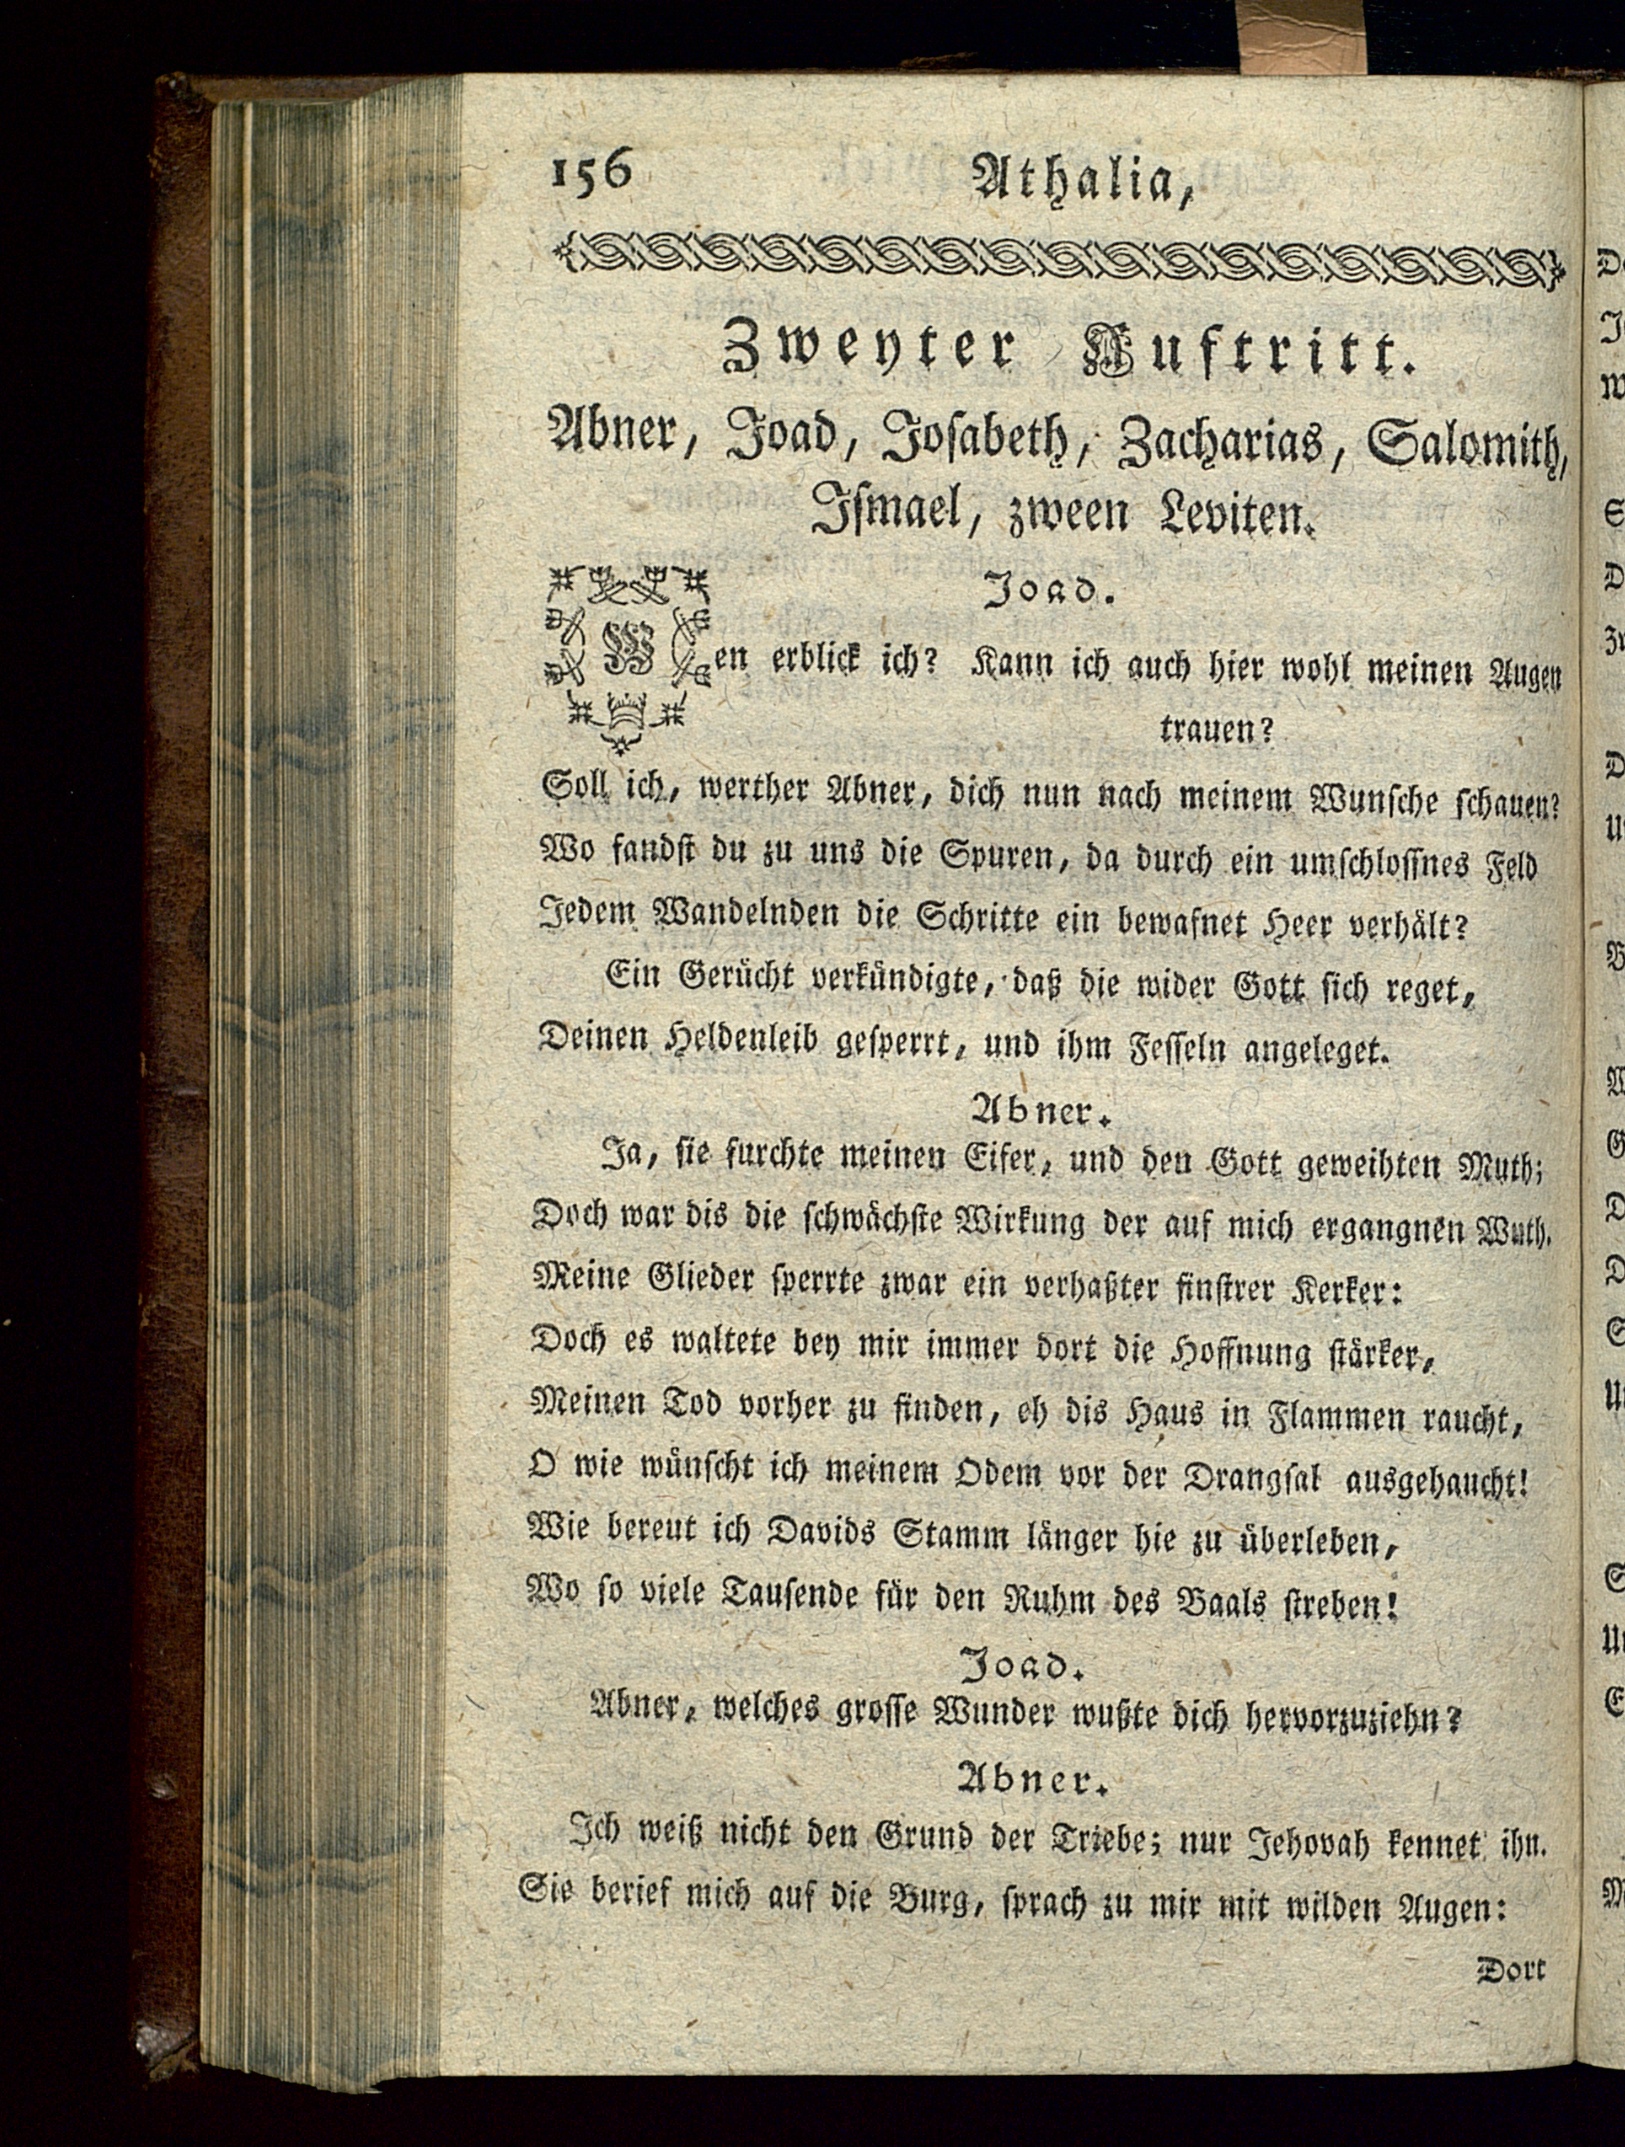 156 Athalia,
Zweyter Auftritt.
Abner, Joad, Josabeth, Zacharias, Salomith,
Ismael, zween Leviten.
Joad.
Wen erblick ich? Kann ich auch hier wohl meinen Augen
trauen?
Soll ich, werther Abner, dich nun nach meinem Wunsche schauen?
Wo fandst du zu uns die Spuren, da durch ein umschlossnes Feld
Jedem Wandelnden die Schritte ein bewafnet Heer verhält?
Ein Gerücht verkündigte, daß die wider Gott sich reget,
Deinen Heldenleib gesperrt, und ihm Fesseln angeleget.
Abner.
Ja, sie furchte meinen Eifer, und den Gott geweihten Muth;
Doch war dis die schwächste Wirkung der auf mich ergangnen Wuth.
Meine Glieder sperrte zwar ein verhaßter finstrer Kerker:
Doch es waltete bey mir immer dort die Hoffnung stärker,
Meinen Tod vorher zu finden, eh dis Haus in Flammen raucht,
O wie wünscht ich meinem Odem vor der Drangsal ausgehaucht!
Wie bereut ich Davids Stamm länger hie zu überleben,
Wo so viele Tausende für den Ruhm des Baals streben!
Joad.
Abner, welches grosse Wunder wußte dich hervorzuziehn?
Abner.
Ich weiß nicht den Grund der Triebe; nur Jehovah kennet ihn.
Sie berief mich auf die Burg, sprach zu mir mit wilden Augen:
Dort